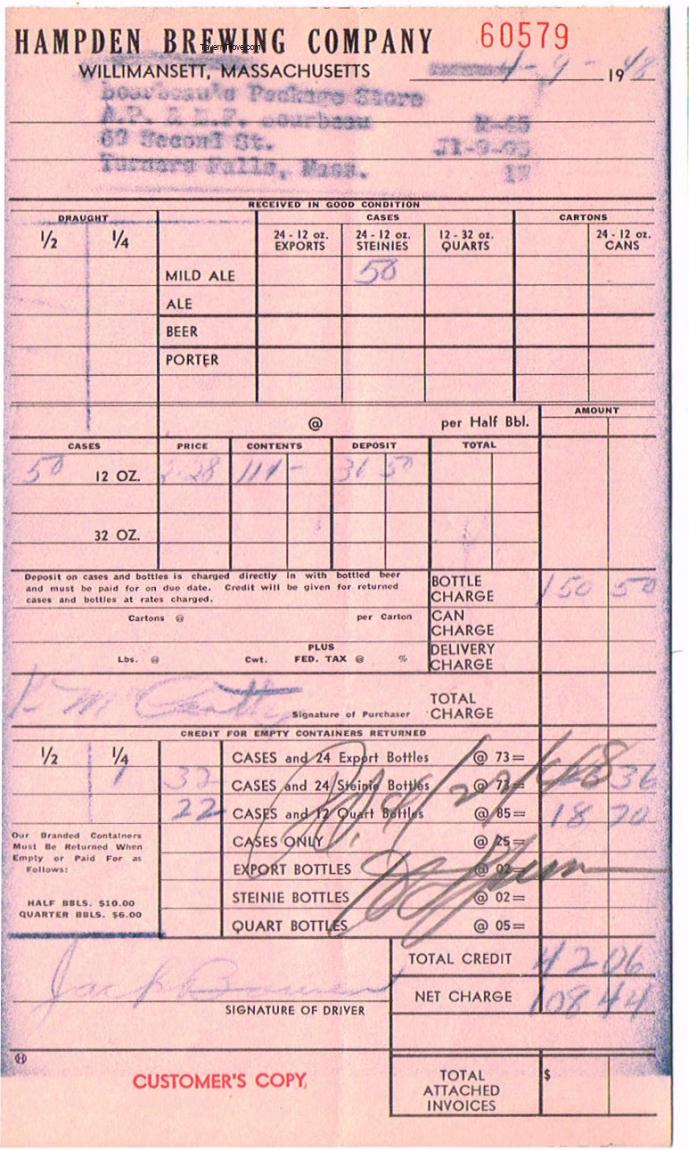 HAMPDEN BREWING COMPANY 60579
TavernTrove.com
WILLIMANSETT, MASSACHUSETTS 4-9-1948
Bourbeau's Package Store
A.P. & E.F. Bourbeau M-65
69 Second St. J1-9-95
Turners Falls, Mass. 17
RECEIVED IN GOOD CONDITION
DRAUGHT CASES CARTONS
1/2 1/4 24 - 12 oz. EXPORTS 24 - 12 oz. STEINIES 12 - 32 oz. QUARTS 24 - 12 oz. CANS
MILD ALE 50
ALE
BEER
PORTER
@ per Half Bbl. AMOUNT
CASES PRICE CONTENTS DEPOSIT TOTAL
50 12 OZ. 2.28 114 - 36 50
32 OZ.
Deposit on cases and bottles is charged directly in with bottled beer
and must be paid for on due date. Credit will be given for returned
cases and bottles at rates charged.
BOTTLE CHARGE 150 50
Cartons @ per Carton CAN CHARGE
PLUS
Lbs. @ Cwt. FED. TAX @ % DELIVERY CHARGE
Signature of Purchaser TOTAL CHARGE
CREDIT FOR EMPTY CONTAINERS RETURNED
1/2 1/4 CASES and 24 Export Bottles @ 73=
32 CASES and 24 Steinie Bottles @ 73= 23 36
22 CASES and 12 Quart Bottles @ 85= 18 70
CASES ONLY @ 25=
EXPORT BOTTLES @ 02=
STEINIE BOTTLES @ 02=
QUART BOTTLES @ 05=
Our Branded Containers
Must Be Returned When
Empty or Paid For as
Follows:
HALF BBLS. $10.00
QUARTER BBLS. $6.00
Pd. 4/27/48
TOTAL CREDIT 42 06
Jack Bowen
SIGNATURE OF DRIVER
NET CHARGE 108 44
CUSTOMER'S COPY
TOTAL ATTACHED INVOICES $